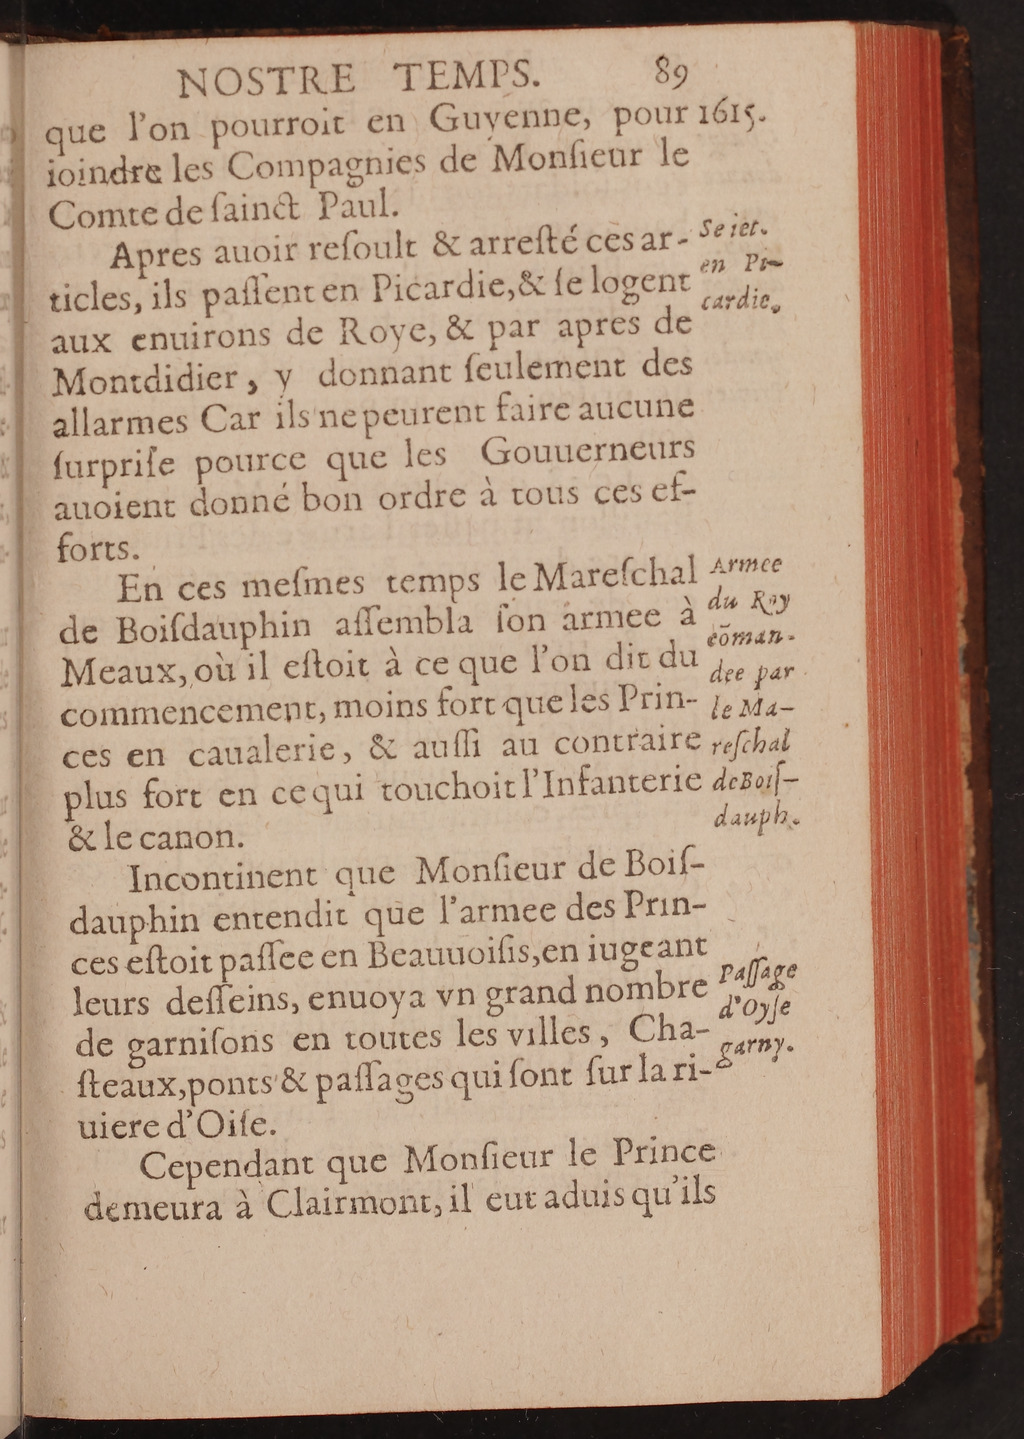 NOSTRE TEMPS. 89
que l'on pourroit en Guyenne, pour 1615.
ioindre les Compagnies de Monſieur le
Comte de ſainct Paul.
Apres auoir reſoult & arreſté ces ar-
ticles, ils paſſent en Picardie, & ſe logent
aux enuirons de Roye, & par apres de
Montdidier, y donnant ſeulement des
allarmes Car ils ne peurent faire aucune
ſurpriſe pource que les Gouuerneurs
auoient donné bon ordre à tous ces ef-
forts.
En ces meſmes temps le Mareſchal
de Boiſdauphin aſſembla ſon armee à
Meaux, où il eſtoit à ce que l'on dit du
commencement, moins fort que les Prin-
ces en caualerie, & auſſi au contraire
plus fort en ce qui touchoit l'Infanterie
& le canon.
Incontinent que Monſieur de Boiſ-
dauphin entendit que l'armee des Prin-
ces eſtoit paſſee en Beauuoiſis, en iugeant
leurs deſſeins, enuoya vn grand nombre
de garniſons en toutes les villes, Cha-
ſteaux, ponts & paſſages qui ſont ſur la ri-
uiere d'Oiſe.
Cependant que Monſieur le Prince
demeura à Clairmont, il eut aduis qu'ils
en Pi-
cardie,
Armee
du Roy
coman-
dee par
le Ma-
reſchal
de Boiſ-
dauph.
Paſſage
d'Oyſe
garny.